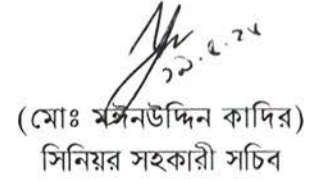 (মোঃ মঈনউদ্দিন কাদির)
সিনিয়র সহকারী সচিব